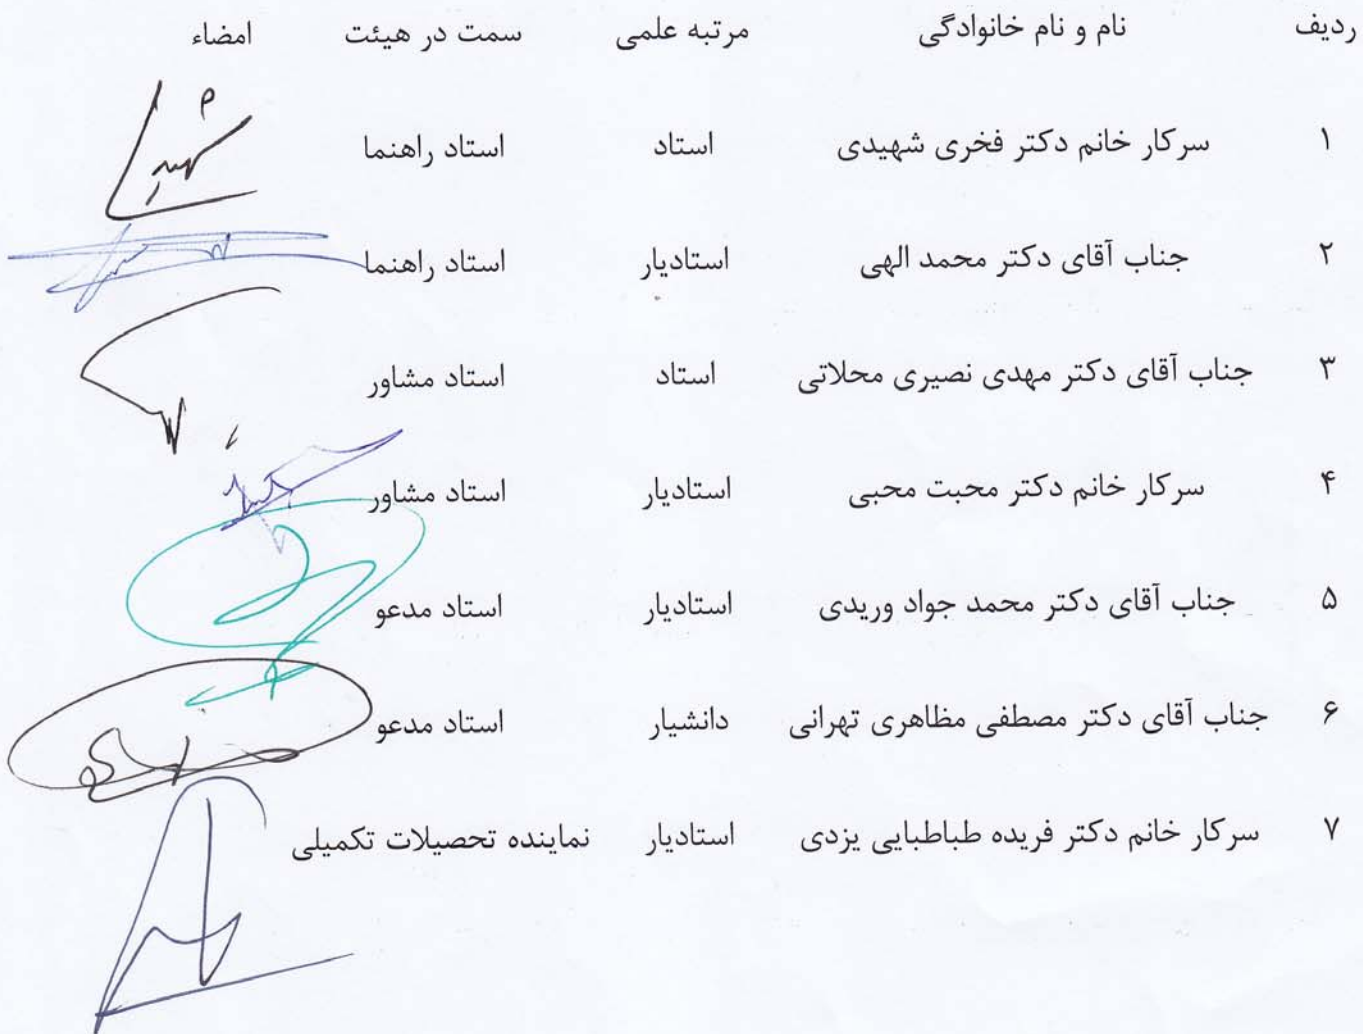 ردیف نام و نام خانوادگی مرتبه علمی سمت در هیئت امضاء
۱ سرکار خانم دکتر فخری شهیدی استاد استاد راهنما
۲ جناب آقای دکتر محمد الهی استادیار استاد راهنما
۳ جناب آقای دکتر مهدی نصیری محلاتی استاد استاد مشاور
۴ سرکار خانم دکتر محبت محبی استادیار استاد مشاور
۵ جناب آقای دکتر محمد جواد وریدی استادیار استاد مدعو
۶ جناب آقای دکتر مصطفی مظاهری تهرانی دانشیار استاد مدعو
۷ سرکار خانم دکتر فریده طباطبایی یزدی استادیار نماینده تحصیلات تکمیلی